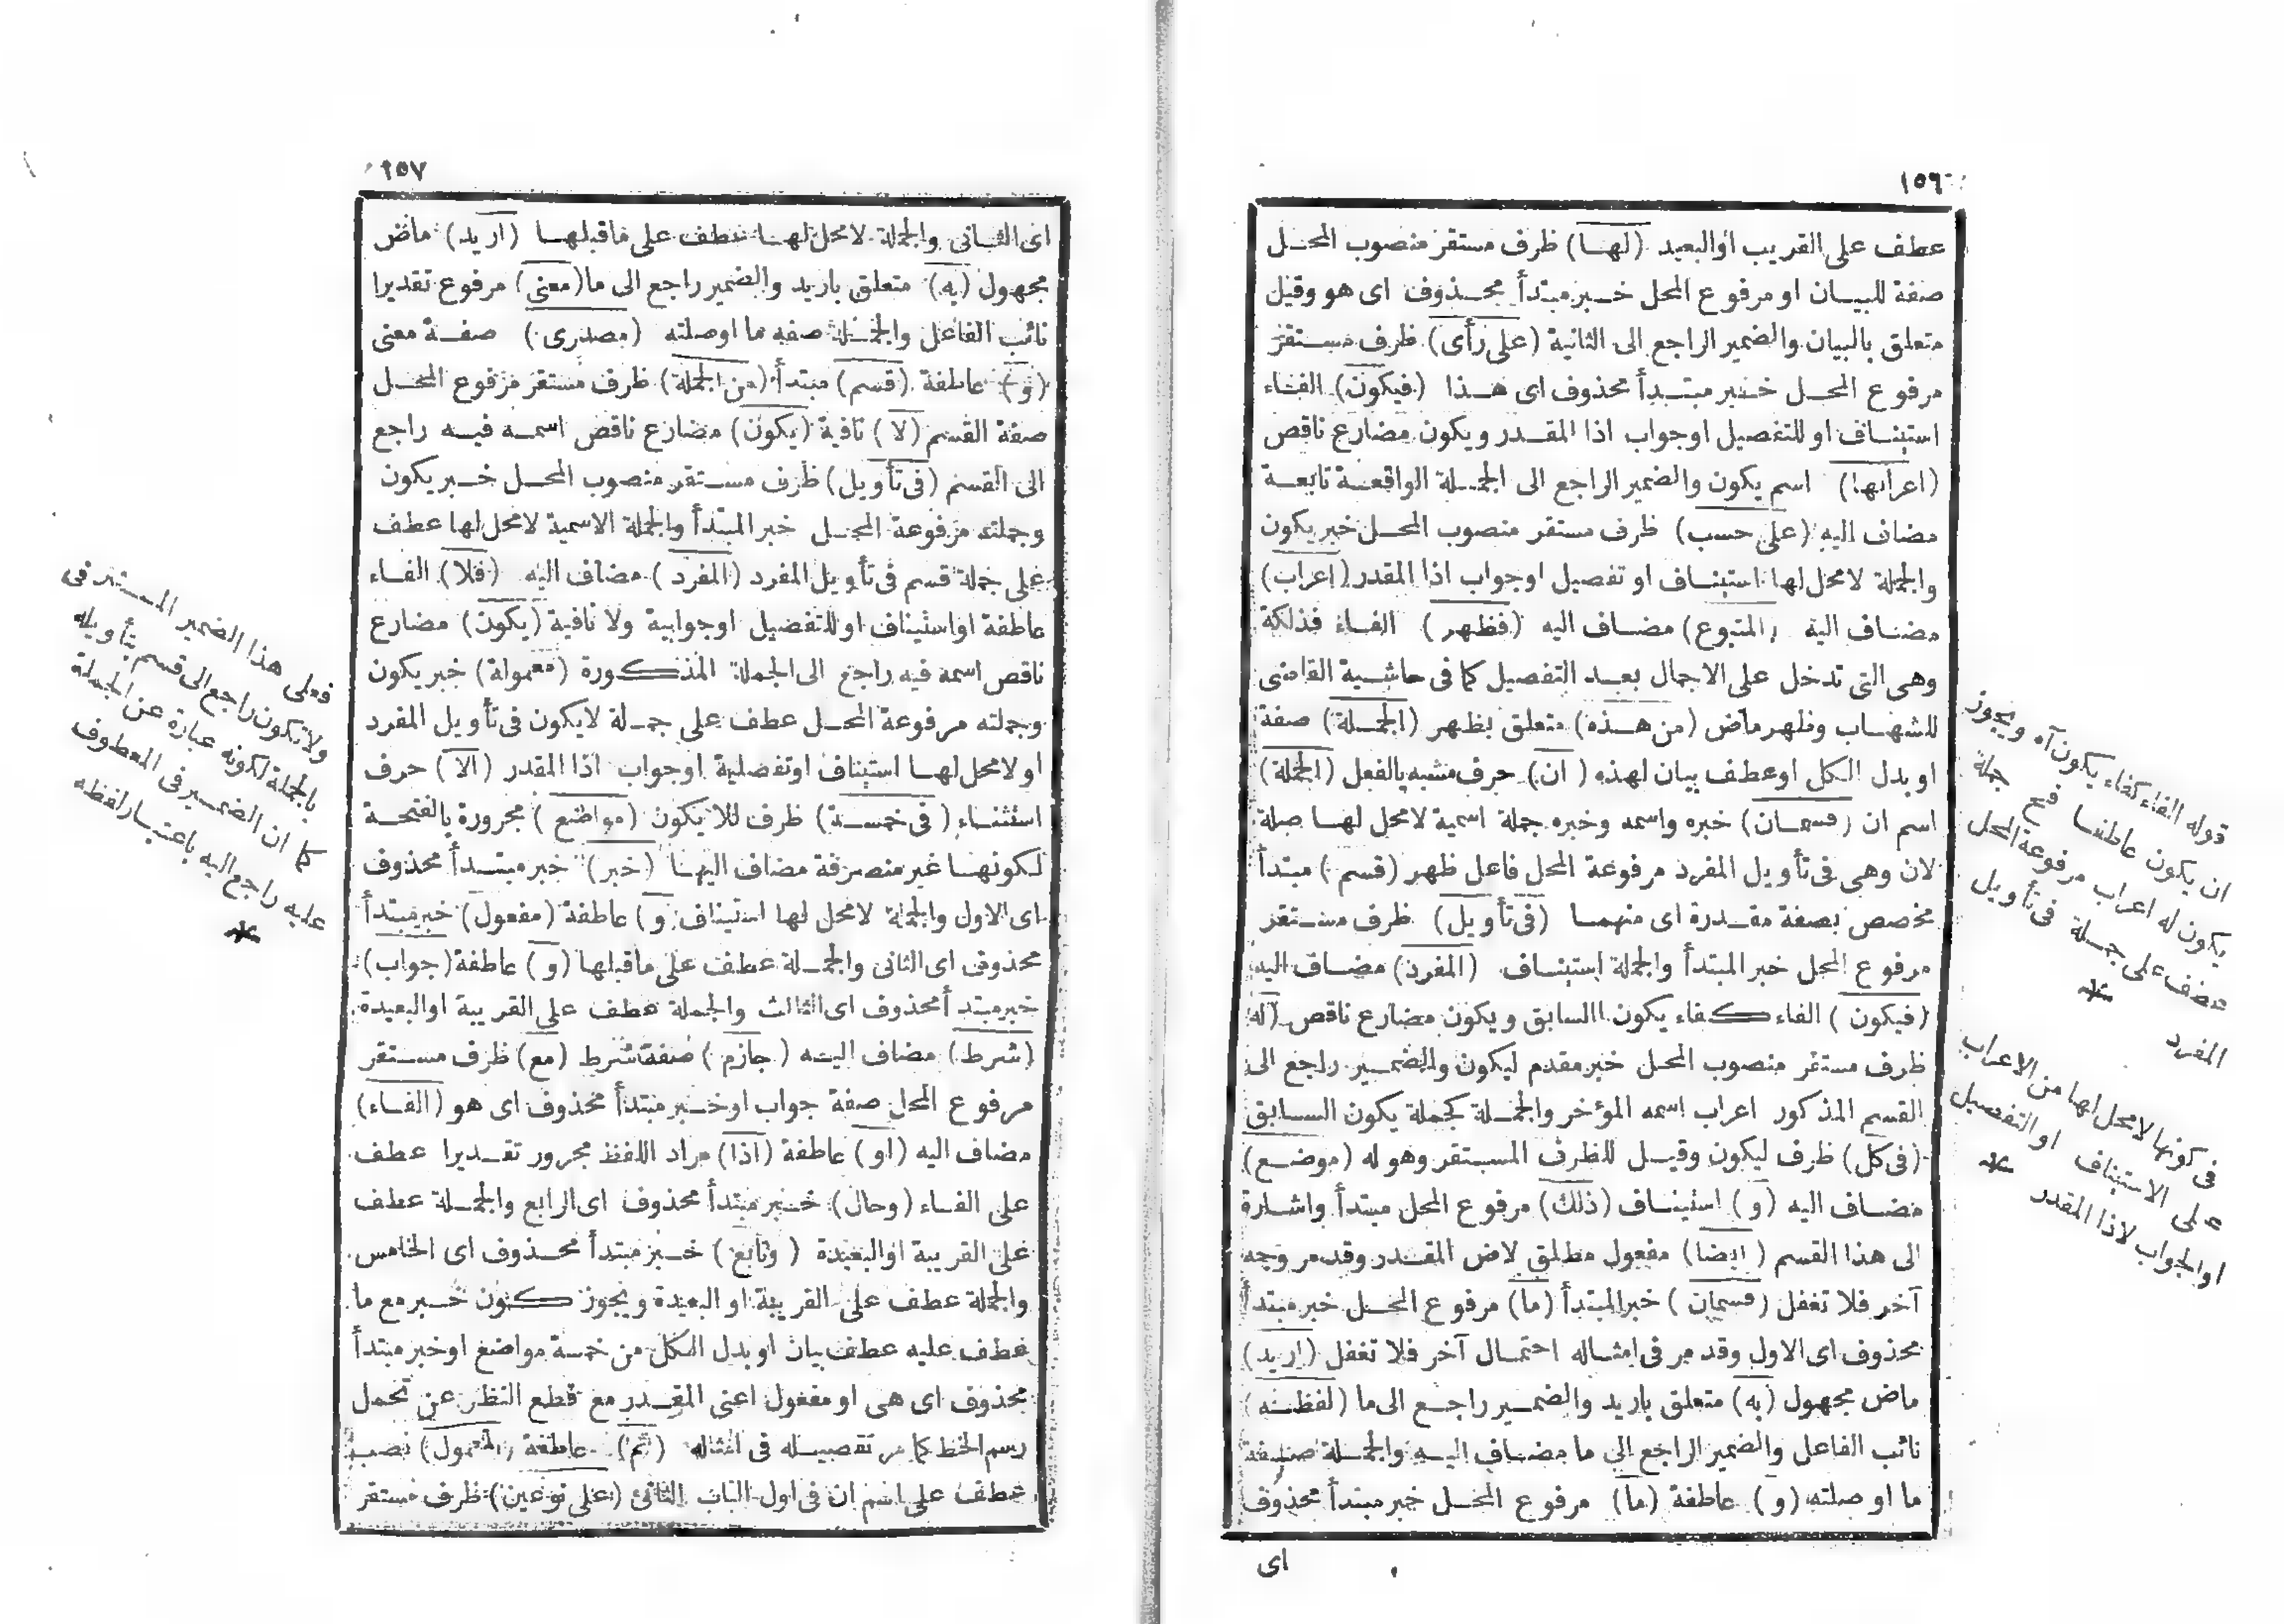 ١٥٦
عطف على القريب او البعيد (لها) ظرف مستقر منصوب المحل
صفة للبيان او مرفوع المحل خبر مبتدأ محذوف اى هو وقيل
متعلق بالبيان والضمير الراجع الى الثانية (على رأى) ظرف مستقر
مرفوع المحل خبر مبتدأ محذوف اى هذا (فيكون) الفاء
استيناف او للتفصيل او جواب اذا المقدر ويكون مضارع ناقص
(اعرابها) اسم يكون والضمير الراجع الى الجملة الواقعة تابعة
مضاف اليه (على حسب) ظرف مستقر منصوب المحل خبر يكون
والجملة لامحل لها استيناف او تفصيل او جواب اذا المقدر (اعراب)
مضاف اليه (المتبوع) مضاف اليه (فظهر) الفاء فذلكة
وهى التى تدخل على الاجمال بعد التفصيل كما فى حاشية القاضى
للشهاب وظهر ماض (من هذه) متعلق بظهر (الجملة) صفة
او بدل الكل او عطف بيان لهذه (ان) حرف مشبه بالفعل (الجملة)
اسم ان (قسمان) خبره واسمه وخبره جملة اسمية لامحل لها صلة
لان وهى فى تأويل المفرد مرفوعة المحل فاعل ظهر (قسم) مبتدأ
مخصص بصفة مقدرة اى منهما (فى تأويل) ظرف مستقر
مرفوع المحل خبر المبتدأ والجملة استيناف (المفرد) مضاف اليه
(فيكون) الفاء كفاء يكون السابق ويكون مضارع ناقص (له)
ظرف مستقر منصوب المحل خبر مقدم ليكون والضمير راجع الى
القسم المذكور اعراب اسمه المؤخر والجملة كجملة يكون السابق
(فى كل) ظرف ليكون وقيل للظرف المستقر وهو له (موضع)
مضاف اليه (و) استيناف (ذلك) مرفوع المحل مبتدأ واشارة
الى هذا القسم (ايضا) مفعول مطلق لاض المقدر وقد مر وجه
آخر فلا تغفل (قسمان) خبر المبتدأ (ما) مرفوع المحل خبر مبتدأ
محذوف اى الاول وقد مر فى امثاله احتمال آخر فلا تغفل (اريد)
ماض مجهول (به) متعلق باريد والضمير راجع الى ما (لفظه)
نائب الفاعل والضمير الراجع الى ما مضاف اليه والجملة صفة
ما او صلته (و) عاطفة (ما) مرفوع المحل خبر مبتدأ محذوف
اى
قوله الفاء كفاء يكون آه ويجوز
ان يكون عاطفا فح جملة
يكون له اعراب مرفوعة المحل
عطف على جملة فى تأويل
المفرد
فى كونها لامحل لها من الاعراب
على الاستيناف او التفصيل
او الجواب لاذا المقدر
١٥٧
اى الثانى والجملة لامحل لها عطف على ماقبلها (اريد) ماض
مجهول (به) متعلق باريد والضمير راجع الى ما (معنى) مرفوع تقديرا
نائب الفاعل والجملة صفة ما اوصلته (مصدرى) صفة معنى
(و) عاطفة (قسم) مبتدأ (من الجملة) ظرف مستقر مرفوع المحل
صفة القسم (لا) نافية (يكون) مضارع ناقص اسمه فيه راجع
الى القسم (فى تأويل) ظرف مستقر منصوب المحل خبر يكون
وجملته مرفوعة المحل خبر المبتدأ والجملة الاسمية لامحل لها عطف
على جملة قسم فى تأويل المفرد (المفرد) مضاف اليه (فلا) الفاء
عاطفة او استيناف او للتفصيل او جوابية ولا نافية (يكون) مضارع
ناقص اسمه فيه راجع الى الجملة المذكورة (معمولة) خبر يكون
وجملته مرفوعة المحل عطف على جملة لايكون فى تأويل المفرد
او لامحل لها استيناف او تفصلية او جواب اذا المقدر (الا) حرف
استثناء (فى خمسة) ظرف للايكون (مواضع) مجرورة بالفتحة
لكونها غير منصرفة مضاف اليها (خبر) خبر مبتدأ محذوف
اى الاول والجملة لامحل لها استيناف (و) عاطفة (مفعول) خبر مبتدأ
محذوف اى الثانى والجملة عطف على ماقبلها (و) عاطفة (جواب)
خبر مبتدأ محذوف اى الثالث والجملة عطف على القريبة او البعيدة
(شرط) مضاف اليه (جازم) صفة شرط (مع) ظرف مستقر
مرفوع المحل صفة جواب او خبر مبتدأ محذوف اى هو (الفاء)
مضاف اليه (او) عاطفة (اذا) مراد اللفظ مجرور تقديرا عطف
على الفاء (وحال) خبر مبتدأ محذوف اى الرابع والجملة عطف
على القريبة او البعيدة (وتابع) خبر مبتدأ محذوف اى الخامس
والجملة عطف على القريبة او البعيدة ويجوز كون خبر مع ما
عطف عليه عطف بيان او بدل الكل من خمسة مواضع او خبر مبتدأ
محذوف اى هى او مفعول اعنى المقدر مع قطع النظر عن تحمل
رسم الخط كما مر تفصيله فى امثاله (ثم) عاطفة (المعمول) نصب
عطف على اسم ان فى اول الباب الثانى (على نوعين) ظرف مستقر
فعلى هذا الضمير المستتر فى
ولا تكون راجع الى قسم بتأويله
بالجملة لكونه عبارة عن الجملة
كما ان الضمير فى المعطوف
عليه راجع اليه باعتبار لفظه